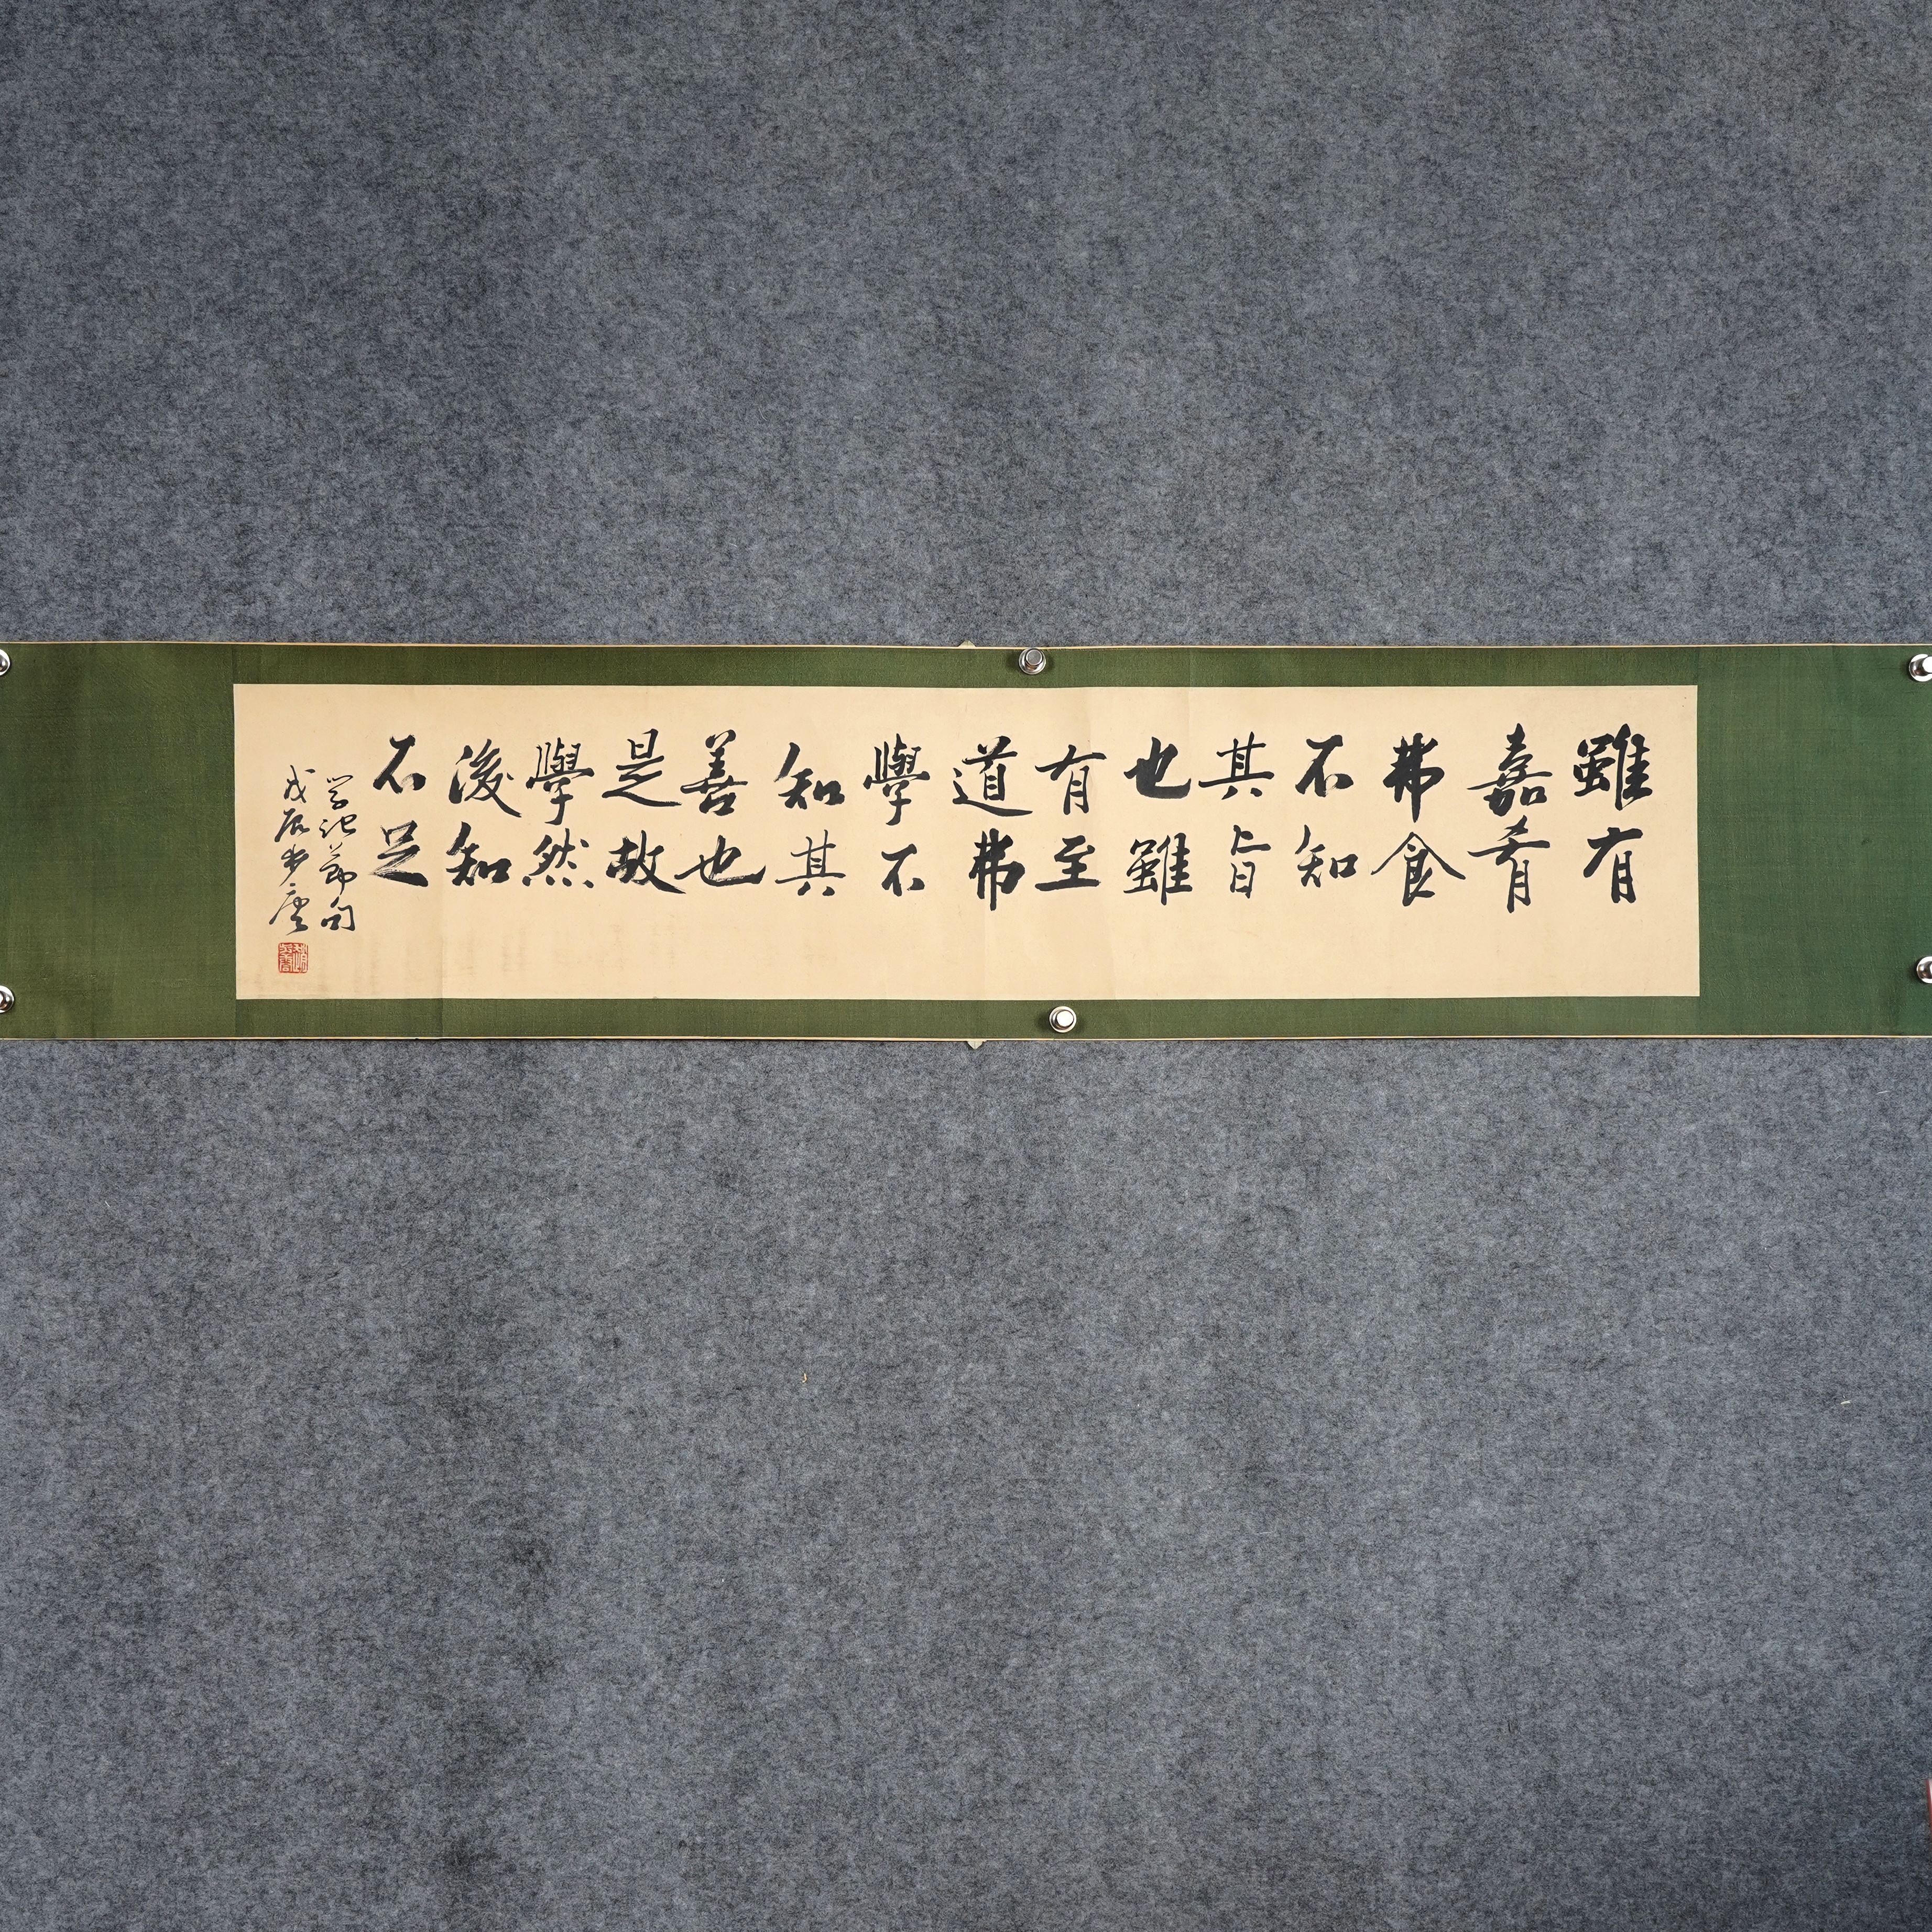 雖有
嘉肴
弗食
不知
其旨
也雖
有至
道弗
學不
知其
善也
是故
學然
後知
不足
学记节句
戊辰步唐